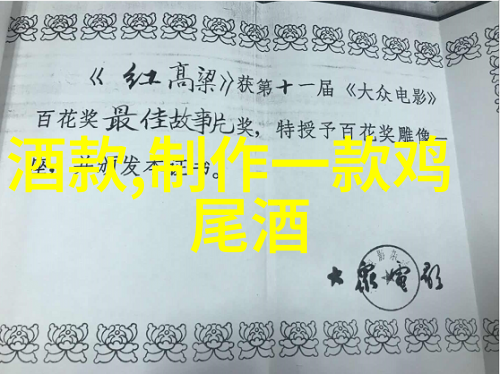 《红高粱》获第十一届《大众电影》
百花奖最佳故事片奖,特授予百花奖雕像一
座,并颁发本证书。
酒款,制作一款鸡
尾酒
大众电影